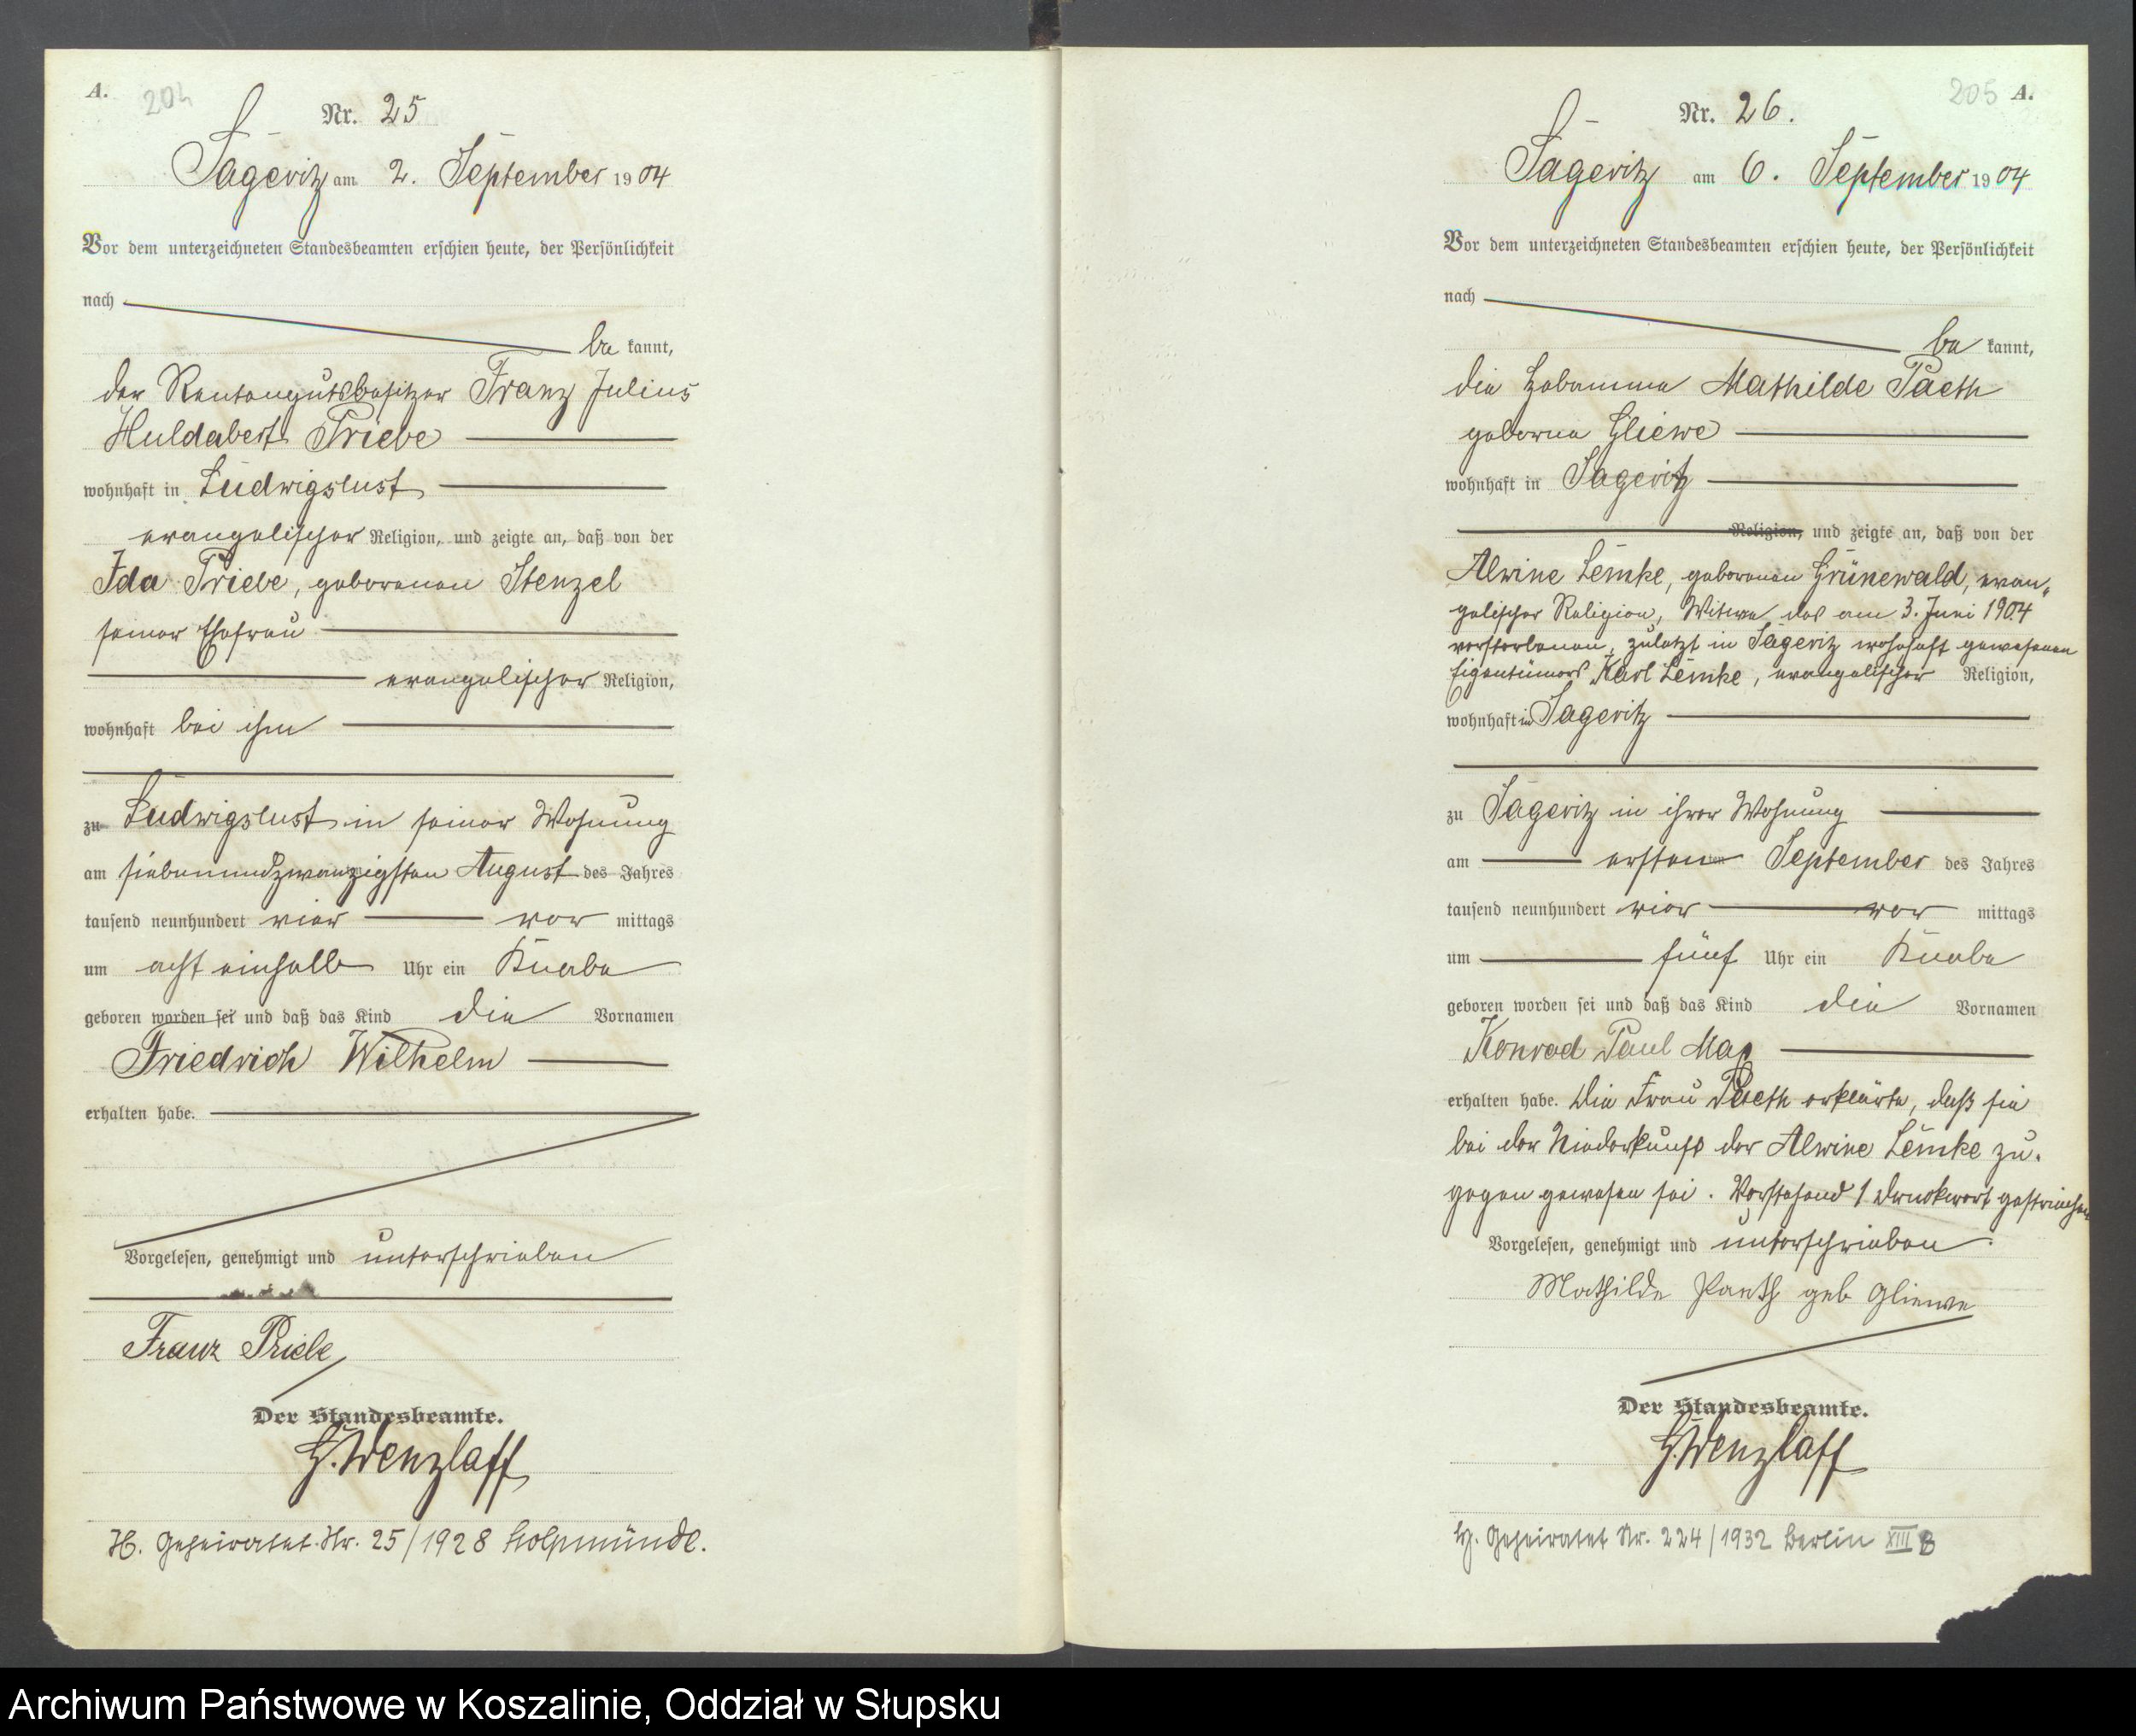 A.
204
Nr. 25
Sageritz am 2. September 1904
Vor dem unterzeichneten Standesbeamten erschien heute, der Persönlichkeit
nach
be kannt,
der Rentengutsbesitzer Franz Julius
Huldabert Priebe
wohnhaft in Ludwigslust
evangelischer Religion, und zeigte an, daß von der
Ida Priebe, geborenen Stenzel
seiner Ehefrau
evangelischer Religion,
wohnhaft bei ihm
zu Ludwigslust in seiner Wohnung
am siebenundzwanzigsten August des Jahres
tausend neunhundert vier vor mittags
um acht einhalb Uhr ein Knabe
geboren worden sei und daß das Kind die Vornamen
Friedrich Wilhelm
erhalten habe.
Vorgelesen, genehmigt und unterschrieben
Franz Priebe
Der Standesbeamte.
H. Wenzlaff
H. Geheiratet Nr. 25/1928 Stolpmünde.
205 A.
Nr. 26.
Sageritz am 6. September 1904
Vor dem unterzeichneten Standesbeamten erschien heute, der Persönlichkeit
nach
be kannt,
die Hebamme Mathilde Paeth
geborne Gliewe
wohnhaft in Sageritz
Religion, und zeigte an, daß von der
Alwine Lemke, geborenen Grünewald, evan-
gelischer Religion, Witwe des am 3. Juni 1904
verstorbenen, zuletzt in Sageritz wohnhaft gewesenen
Eigentümers Karl Lemke, evangelischer Religion,
wohnhaft in Sageritz
zu Sageritz in ihrer Wohnung
am ersten September des Jahres
tausend neunhundert vier vor mittags
um fünf Uhr ein Knabe
geboren worden sei und daß das Kind die Vornamen
Konrad Paul Max
erhalten habe. Die Frau Paeth erklärte, daß sie
bei der Niederkunft der Alwine Lemke zu-
gegen gewesen sei. Vorstehend 1 Druckwort gestrichen
Vorgelesen, genehmigt und unterschrieben.
Mathilde Paeth geb Gliewe
Der Standesbeamte.
H. Wenzlaff
H. Geheiratet Nr. 224/1932 Berlin XIII B
Archiwum Państwowe w Koszalinie, Oddział w Słupsku